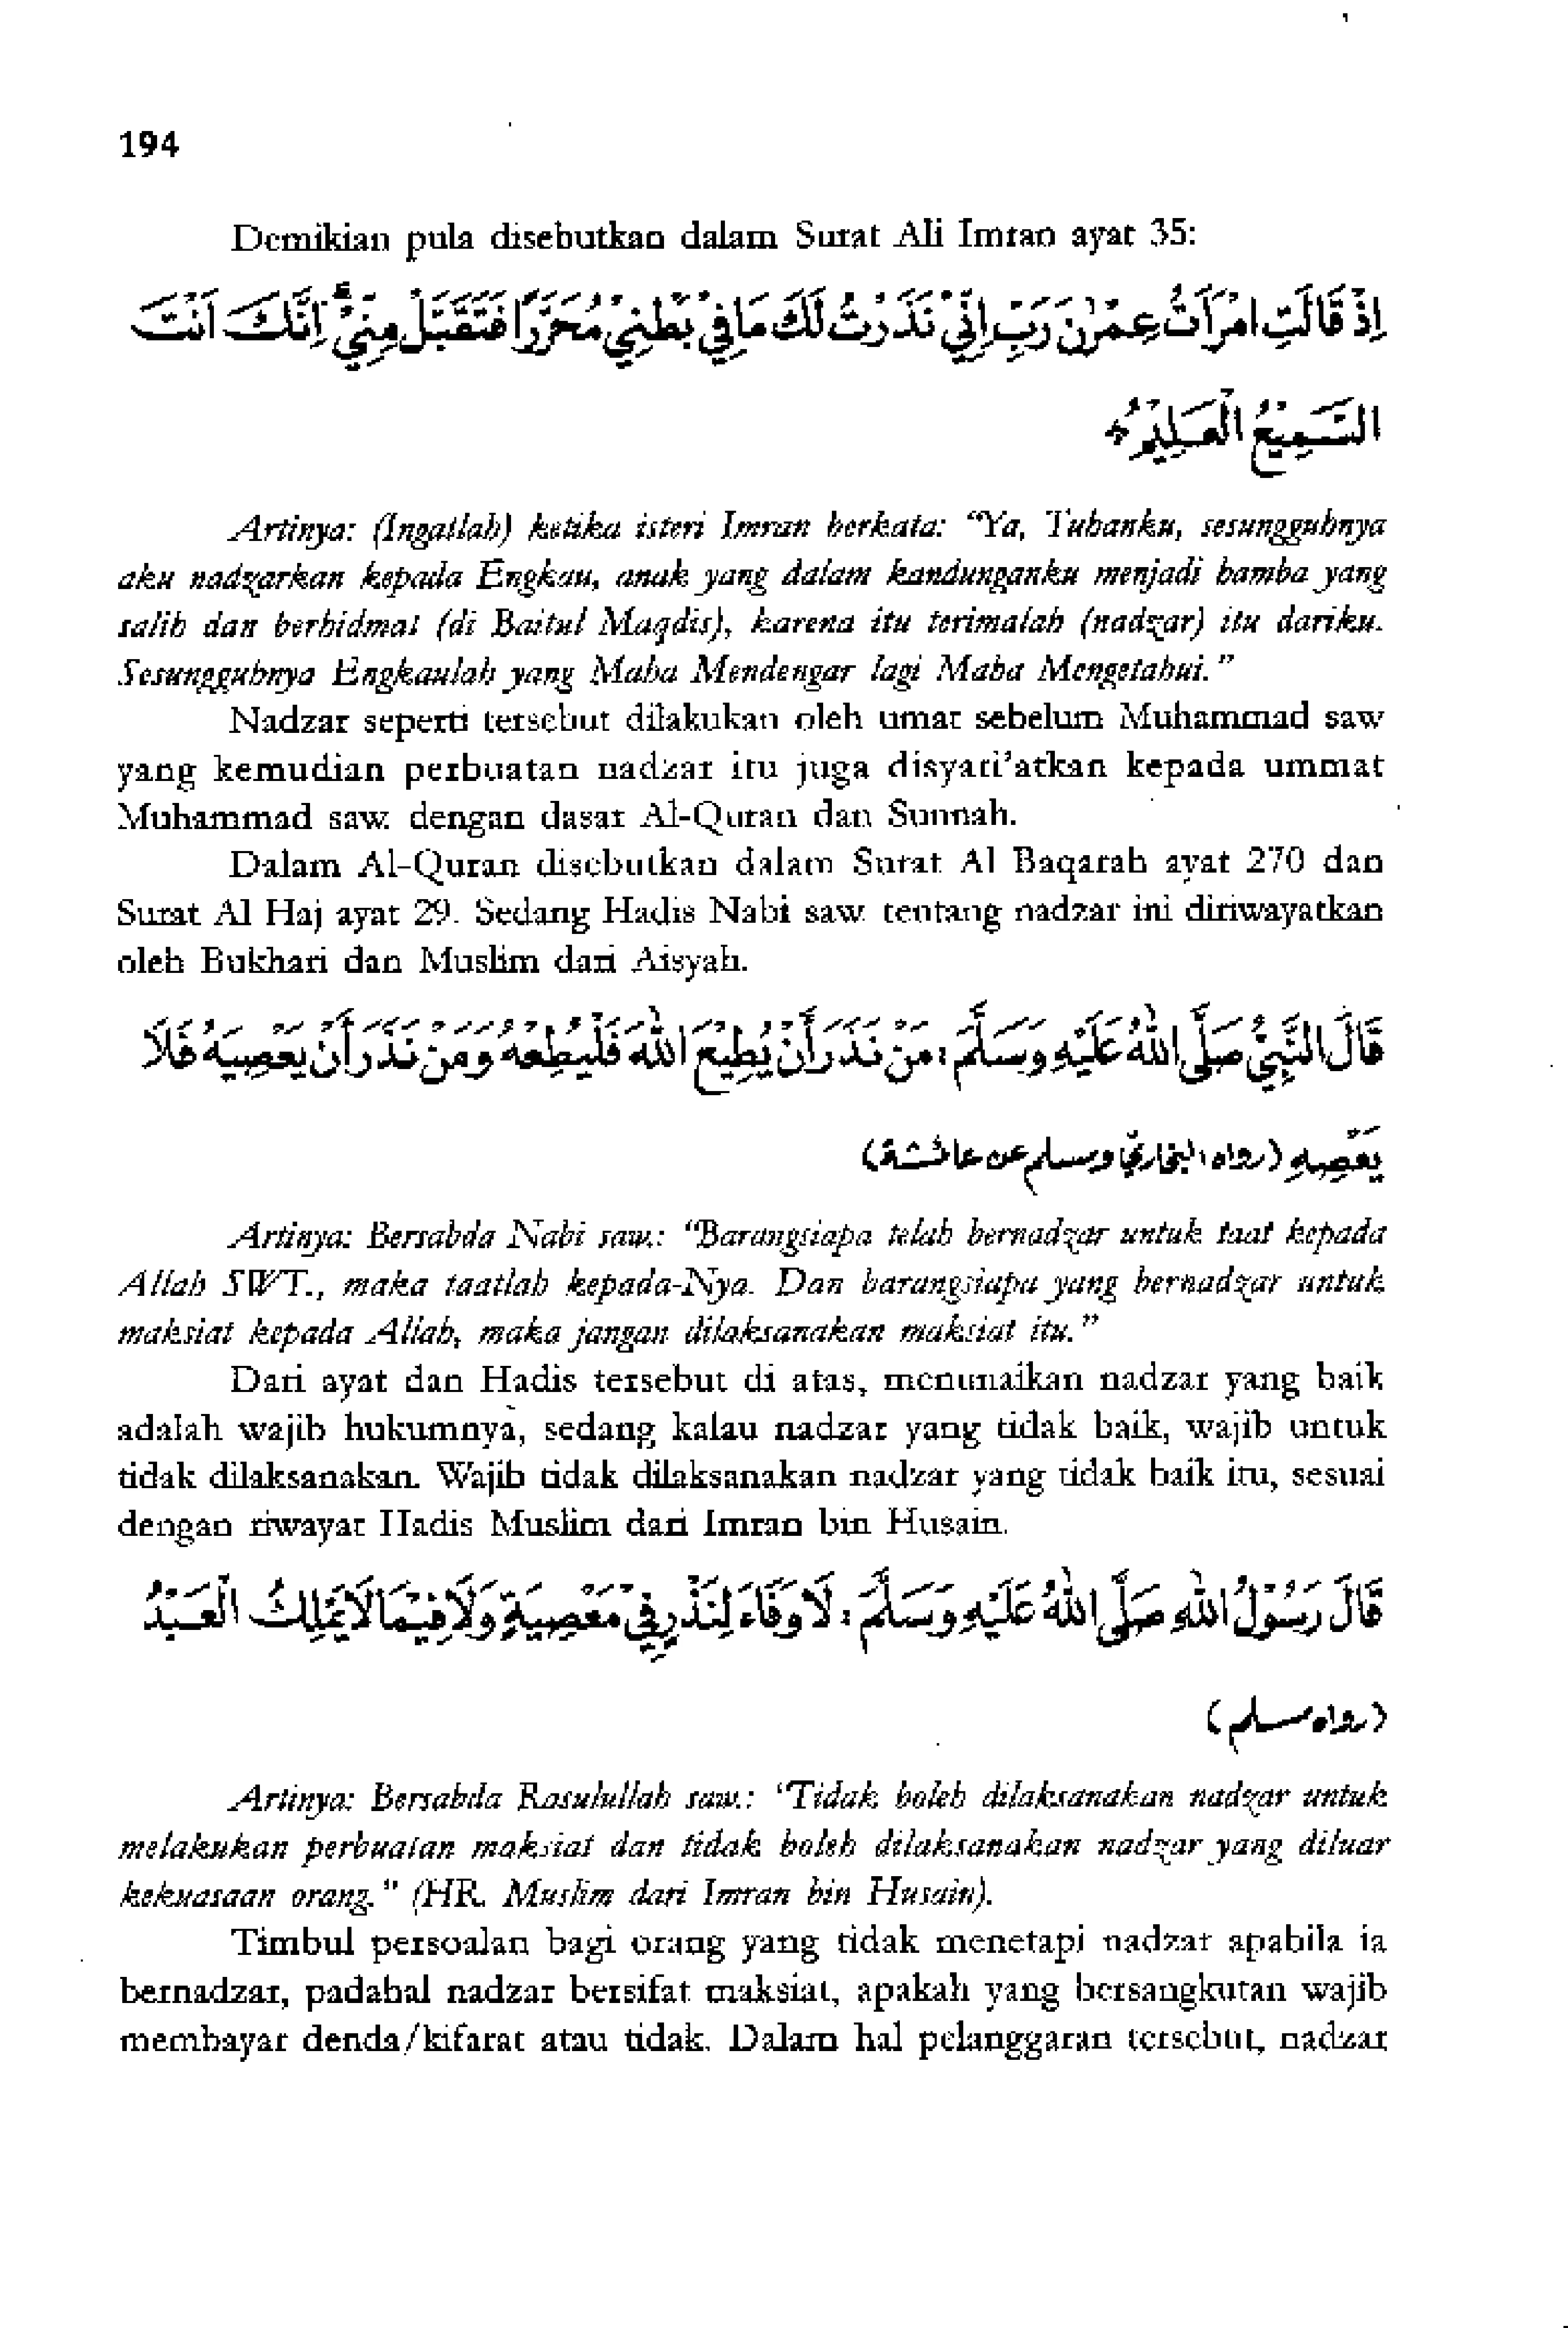 194
Demikian pula disebutkan dalam Surat Ali Imran ayat 35:
اِذْ قَالَتِ امْرَاَتُ عِمْرٰنَ رَبِّ اِنِّيْ نَذَرْتُ لَكَ مَا فِيْ بَطْنِيْ مُحَرَّرًا فَتَقَبَّلْ مِنِّيْ ۚ اِنَّكَ اَنْتَ
السَّمِيْعُ الْعَلِيْمُ
Artinya: (Ingatlah) ketika isteri Imran berkata: “Ya, Tuhanku, sesungguhnya
aku nadzarkan kepada Engkau, anak yang dalam kandunganku menjadi hamba yang
salih dan berhidmat (di Baitul Maqdis), karena itu terimalah (nadzar) itu dariku.
Sesungguhnya Engkaulah yang Maha Mendengar lagi Maha Mengetahui.”
Nadzar seperti tersebut dilakukan oleh umat sebelum Muhammad saw
yang kemudian perbuatan nadzar itu juga disyari’atkan kepada ummat
Muhammad saw. dengan dasar Al-Quran dan Sunnah.
Dalam Al-Quran disebutkan dalam Surat Al Baqarah ayat 270 dan
Surat Al Haj ayat 29. Sedang Hadis Nabi saw. tentang nadzar ini diriwayatkan
oleh Bukhari dan Muslim dari Aisyah.
قَالَ النَّبِيُّ صَلَّى اللهُ عَلَيْهِ وَسَلَّمَ : مَنْ نَذَرَ أَنْ يُطِيْعَ اللهَ فَلْيُطِعْهُ وَمَنْ نَذَرَ أَنْ يَعْصِيَهُ فَلَا
يَعْصِهِ (رواه البخاري ومسلم عن عائشة)
Artinya: Bersabda Nabi saw.: “Barangsiapa telah bernadzar untuk taat kepada
Allah SWT., maka taatlah kepada-Nya. Dan barangsiapa yang bernadzar untuk
maksiat kepada Allah, maka jangan dilaksanakan maksiat itu.”
Dari ayat dan Hadis tersebut di atas, menunaikan nadzar yang baik
adalah wajib hukumnya, sedang kalau nadzar yang tidak baik, wajib untuk
tidak dilaksanakan. Wajib tidak dilaksanakan nadzar yang tidak baik itu, sesuai
dengan riwayat Hadis Muslim dari Imran bin Husain.
قَالَ رَسُوْلُ اللهِ صَلَّى اللهُ عَلَيْهِ وَسَلَّمَ : لَا وَفَاءَ لِنَذْرٍ فِيْ مَعْصِيَةٍ وَلَا فِيْمَا لَا يَمْلِكُ الْعَبْدُ
(رواه مسلم)
Artinya: Bersabda Rasulullah saw.: ‘Tidak boleh dilaksanakan nadzar untuk
melakukan perbuatan maksiat dan tidak boleh dilaksanakan nadzar yang diluar
kekuasaan orang.” (HR. Muslim dari Imran bin Husain).
Timbul persoalan bagi orang yang tidak menetapi nadzar apabila ia
bernadzar, padahal nadzar bersifat maksiat, apakah yang bersangkutan wajib
membayar denda/kifarat atau tidak. Dalam hal pelanggaran tersebut, nadzar